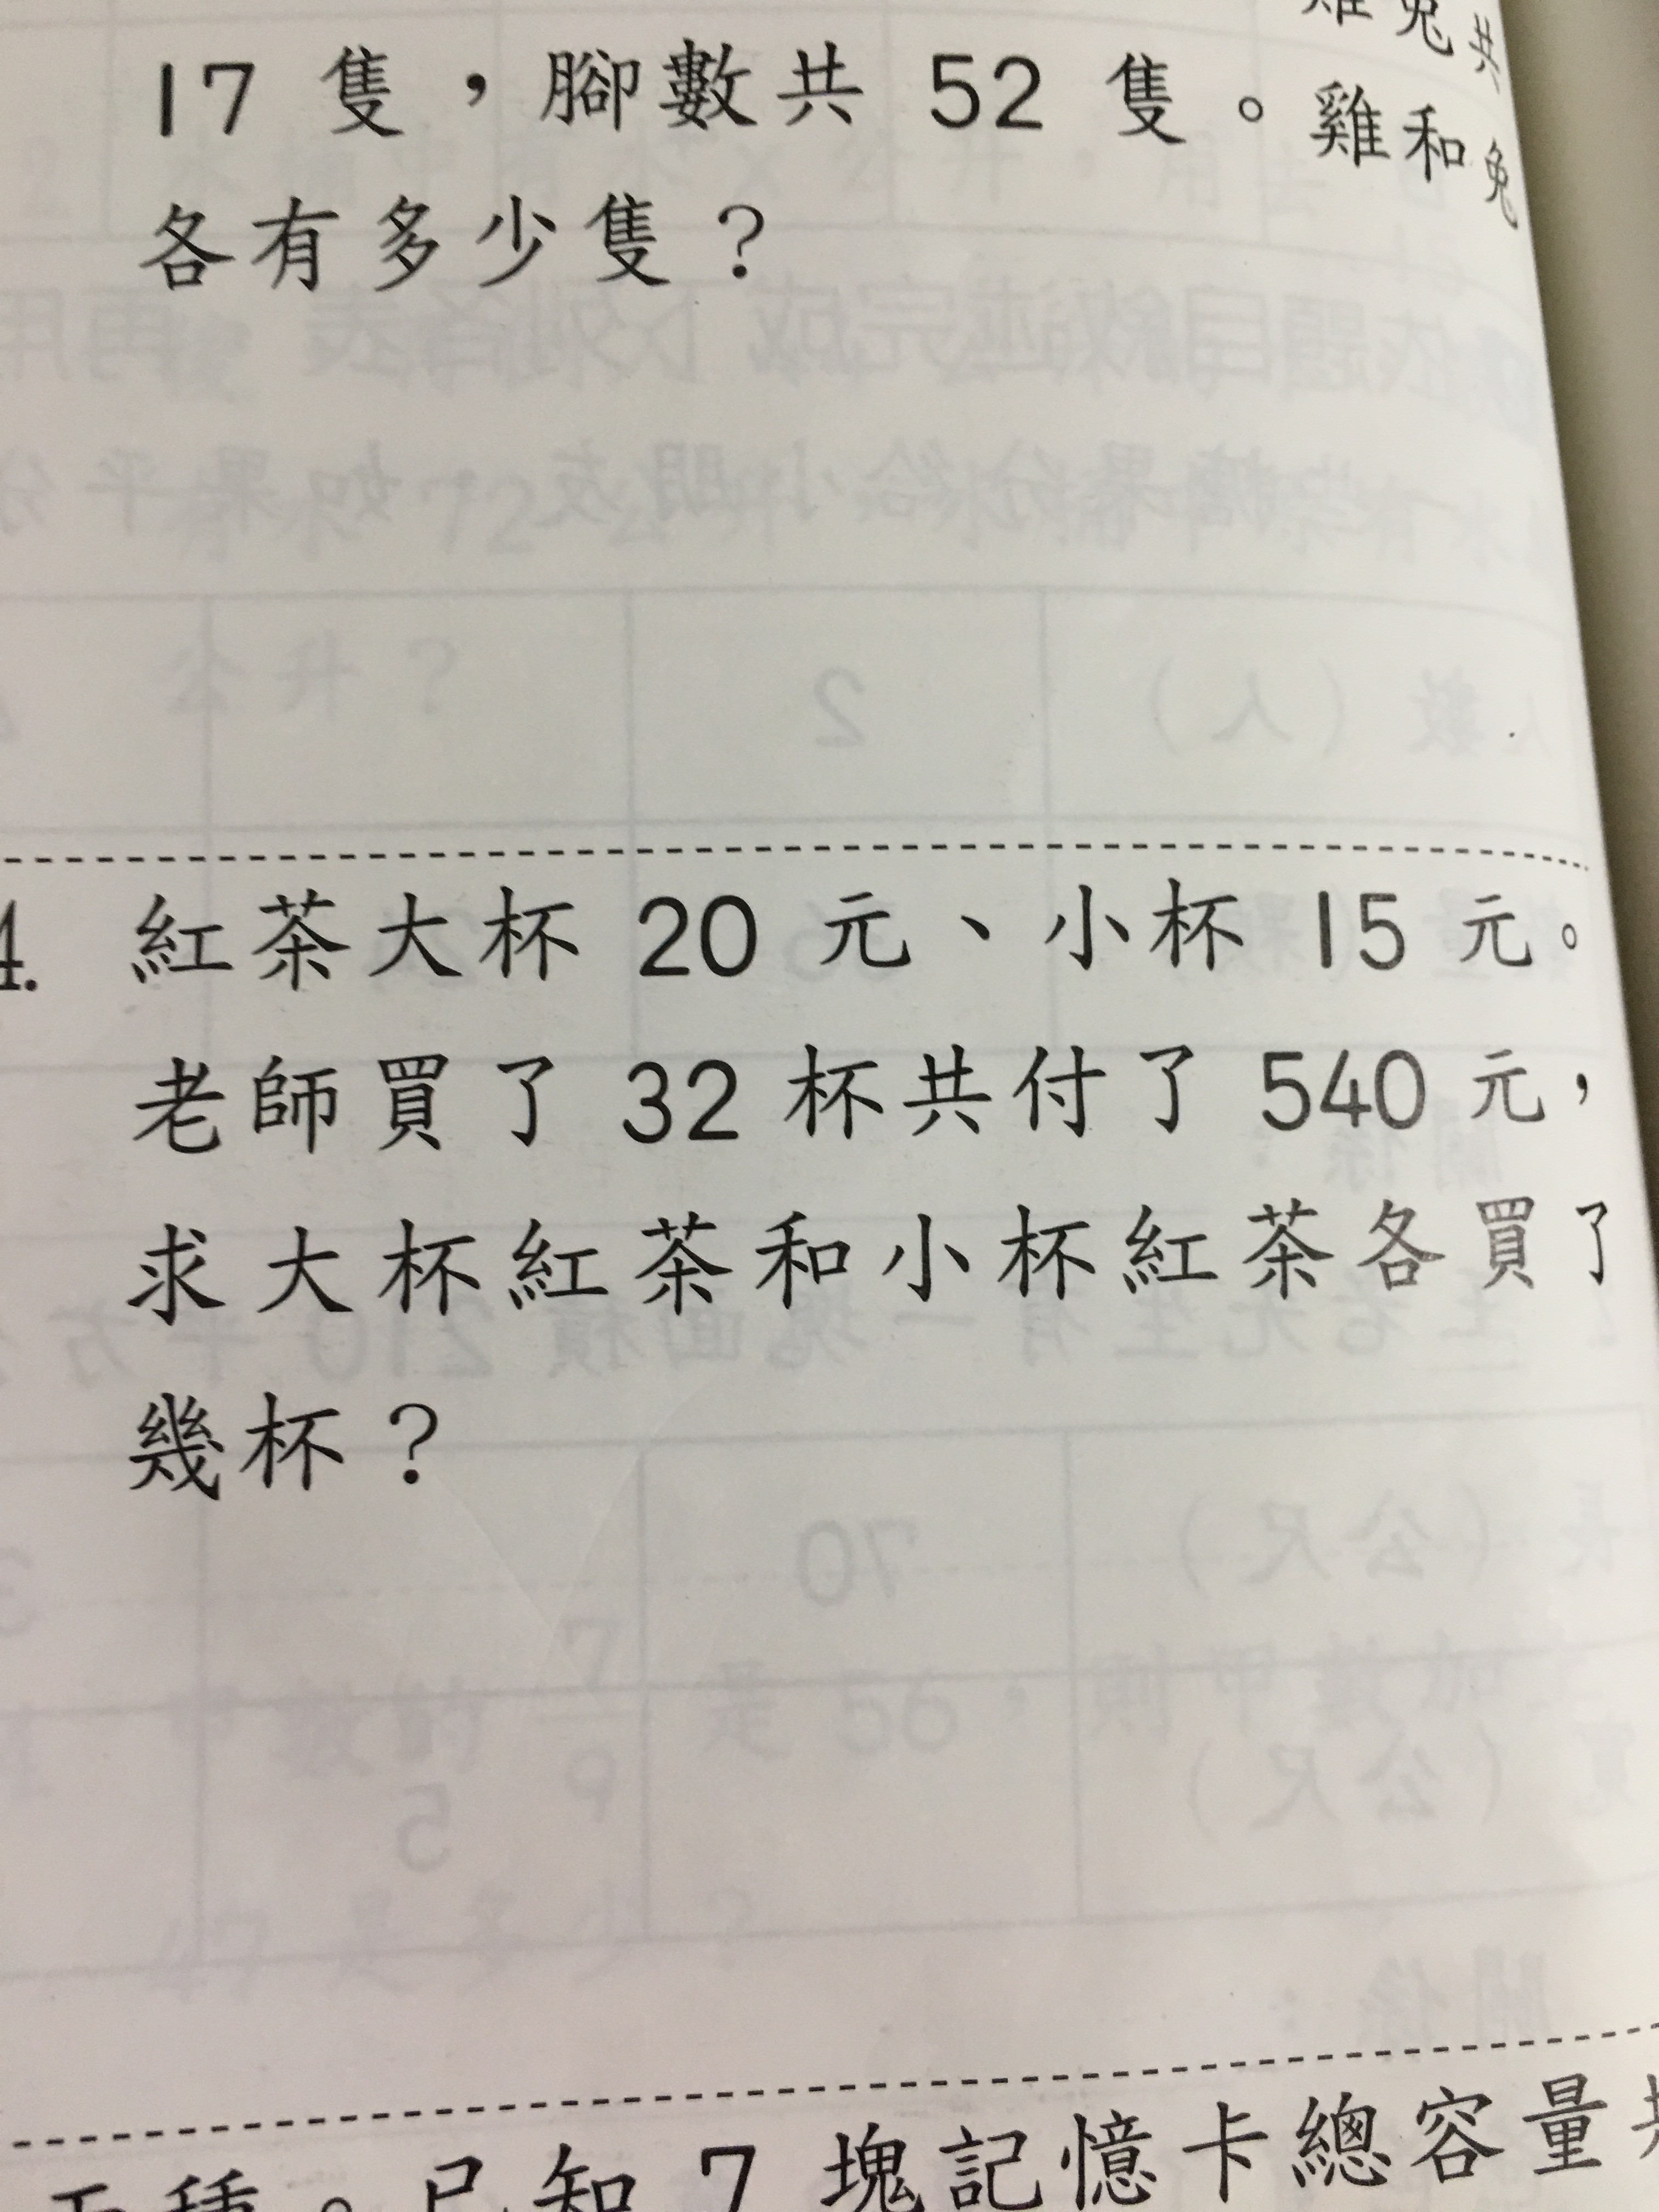 雞兔共
17 隻，腳數共 52 隻。雞和兔
各有多少隻？
4. 紅茶大杯 20 元、小杯 15 元。
老師買了 32 杯共付了 540 元，
求大杯紅茶和小杯紅茶各買了
幾杯？
種。已知 7 塊記憶卡總容量共